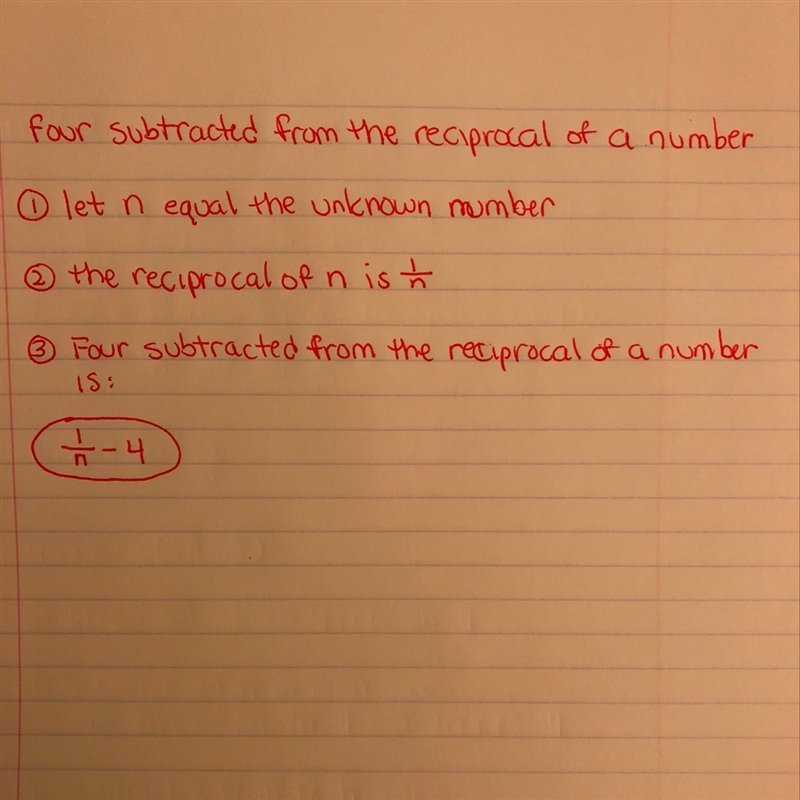 four subtracted from the reciprocal of a number
① let n equal the unknown number
② the reciprocal of n is 1/n
③ Four subtracted from the reciprocal of a number
is:
1/n - 4